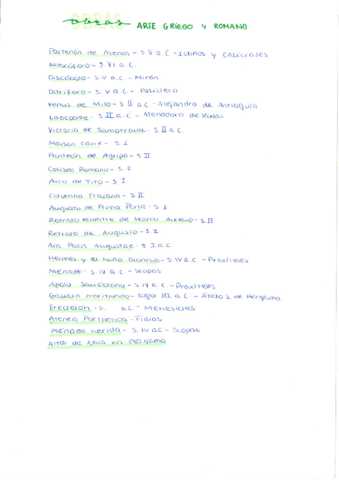 obras ARTE GRIEGO Y ROMANO
Partenón de Atenas - S.V a.C - Ictinos y Calícrates
Moscóforo - S.VI a.C.
Discóbolo - S.V a.C - Mirón
Doríforo - S V a.C - Policleto
Venus de Milo - S II a.C - Alejandro de Antioquía
Laocoonte - S.II a.C - Atenodoro de Rodas
Victoria de Samotracia - S.II a.C.
Maison Carré - S.I
Panteón de Agripa - S II
Coliseo Romano - S.I
Arco de Tito - S I
Columna Trajana - S II
Augusto de Prima Porta - S I
Retrato ecuestre de Marco Aurelio - S II
Retrato de Augusto - S.I
Ara Pacis Augustae - S I a.C
Hermes y el niño Dionisio - S IV a.C - Praxíteles
Ménade - S IV a.C - Scopas
Apolo Sauróctono - S IV a.C - Praxíteles
Gálata moribundo - Siglo III a.C - Átalo I de Pérgamo.
Erecteion - S. a.C - Menesicles
Atenea Partenos - Fidias
Ménade herida - S IV a.C - Scopas
Altar de Zeus en Pérgamo